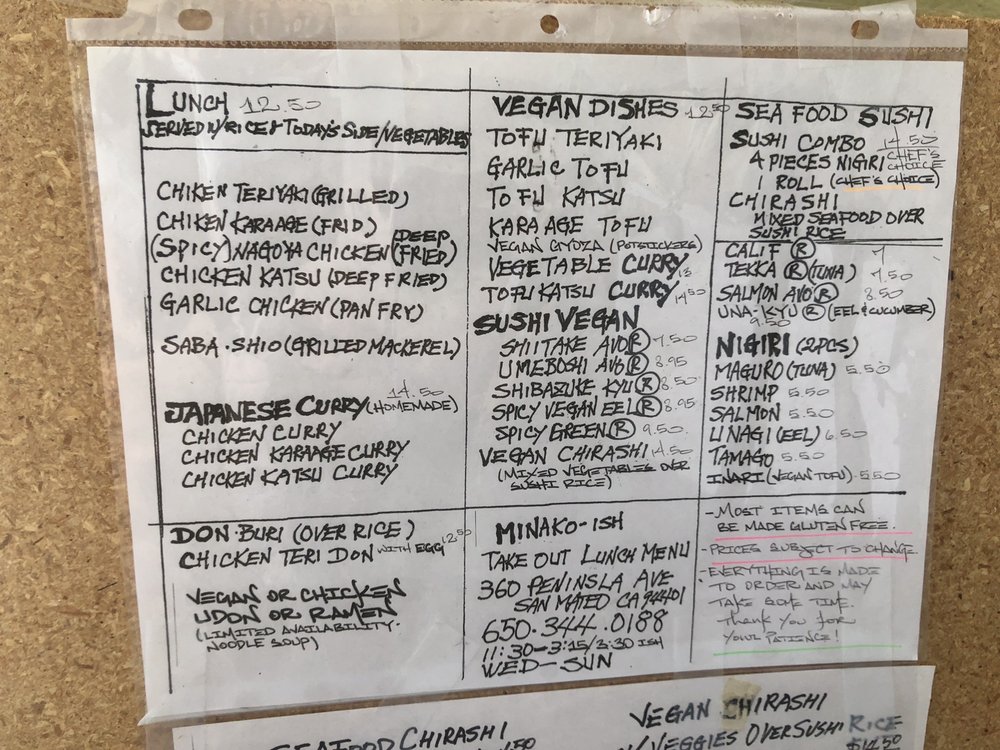 LUNCH 12.50
SERVED W/RICE & TODAY'S SIDE/VEGETABLES
CHIKEN TERIYAKI (GRILLED)
CHIKEN KARAAGE (FRID)
(SPICY) NAGOYA CHICKEN (DEEP FRIED)
CHICKEN KATSU (DEEP FRIED)
GARLIC CHICKEN (PAN FRY)
SABA-SHIO (GRILLED MACKEREL)
14.50
JAPANESE CURRY (HOMEMADE)
CHICKEN CURRY
CHICKEN KARAAGE CURRY
CHICKEN KATSU CURRY
DON-BURI (OVER RICE)
CHICKEN TERI DON WITH EGG 12.50
VEGAN OR CHICKEN
UDON OR RAMEN
(LIMITED AVAILABILITY-
NOODLE SOUP)
VEGAN DISHES 12.50
TOFU TERIYAKI
GARLIC TOFU
TOFU KATSU
KARAAGE TOFU
VEGAN GYOZA (POTSTICKERS)
VEGETABLE CURRY 13
TOFU KATSU CURRY 14.50
SUSHI VEGAN
SHIITAKE AVO Ⓡ 7.50
UMEBOSHI AVO Ⓡ 8.95
SHIBAZUKE KYU Ⓡ 8.50
SPICY VEGAN EEL Ⓡ 8.95
SPICY GREEN Ⓡ 9.50
VEGAN CHIRASHI 14.50
(MIXED VEGETABLES OVER
SUSHI RICE)
MINAKO-ISH
TAKE OUT LUNCH MENU
360 PENINSLA AVE
SAN MATEO CA 94401
650.344.0188
11:30-3:15/3:30 ISH
WED-SUN
SEA FOOD SUSHI
SUSHI COMBO 14.50
4 PIECES NIGIRI CHEF'S CHOICE
1 ROLL (CHEF'S CHOICE)
CHIRASHI
MIXED SEAFOOD OVER
SUSHI RICE
CALIF Ⓡ 7
TEKKA Ⓡ (TUNA) 7.50
SALMON AVO Ⓡ 8.50
UNA-KYU Ⓡ (EEL & CUCUMBER)
9.50
NIGIRI (2PCS)
MAGURO (TUNA) 5.50
SHRIMP 5.50
SALMON 5.50
UNAGI (EEL) 6.50
TAMAGO 5.50
INARI (VEGAN TOFU) 5.50
- MOST ITEMS CAN
BE MADE GLUTEN FREE.
- PRICES SUBJECT TO CHANGE
- EVERYTHING IS MADE
TO ORDER AND MAY
TAKE SOME TIME.
THANK YOU FOR
YOUR PATIENCE!
SEAFOOD CHIRASHI
VEGAN CHIRASHI
W/VEGGIES OVER SUSHI RICE
$14.50